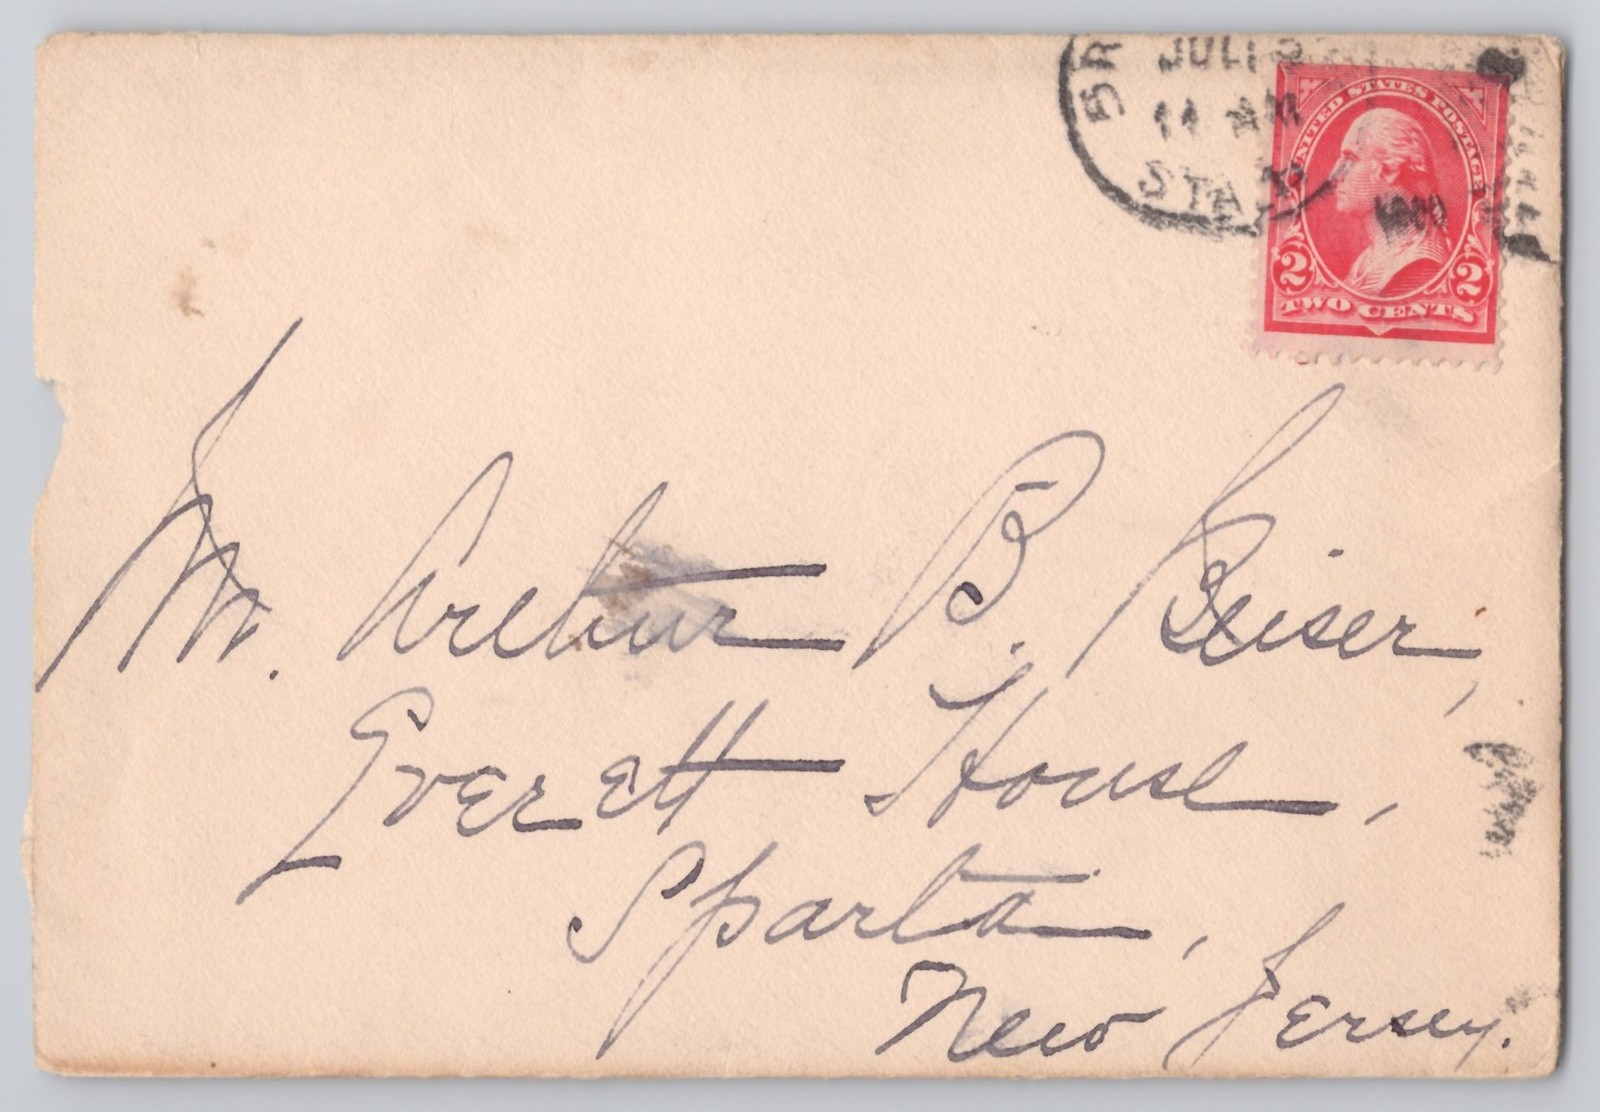 JUL 
11 AM
STA.
UNITED STATES POSTAGE
2 2
TWO CENTS
Mr. Arthur B. Keiser,
Everett House,
Sparta,
New Jersey.